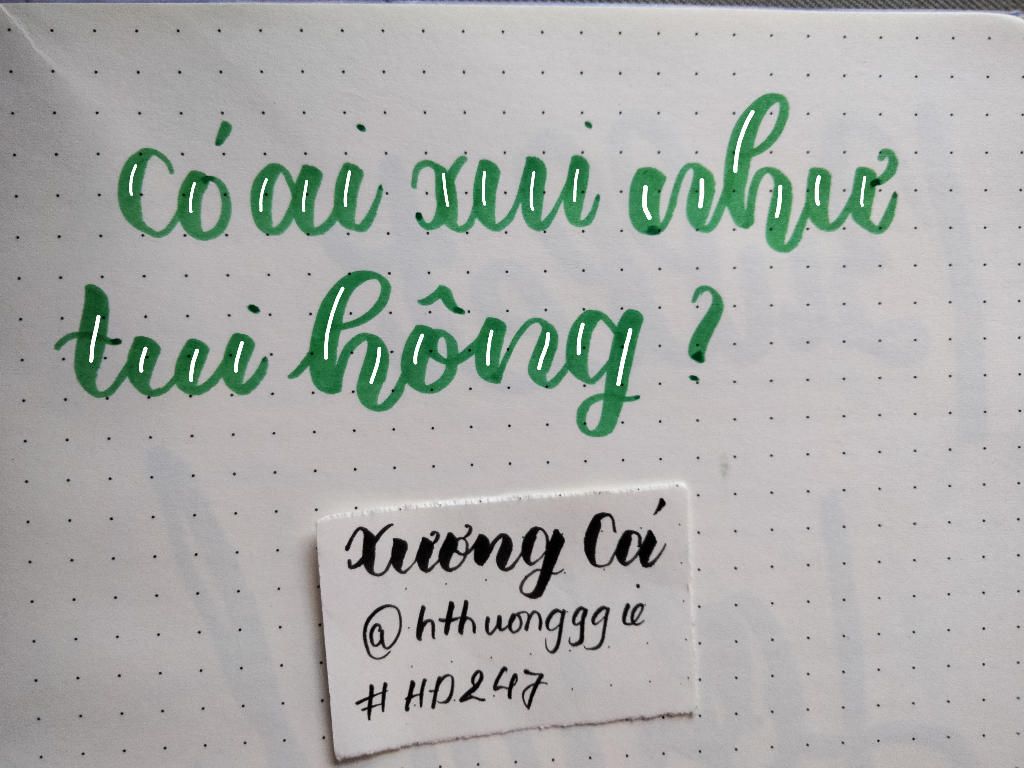 có ai xui như
tui hông ?
Xương Cá
@hthuongggie
#HD247